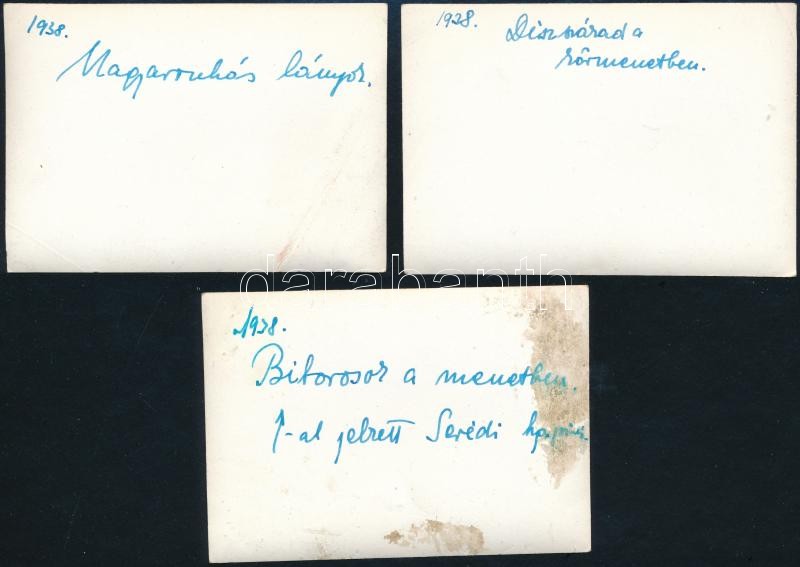 1938.
Magyarruhás lányok.
1938. Diszszázad a
körmenetben.
darabanth
1938.
Biborosok a menetben.
↑-al jelzett Serédi